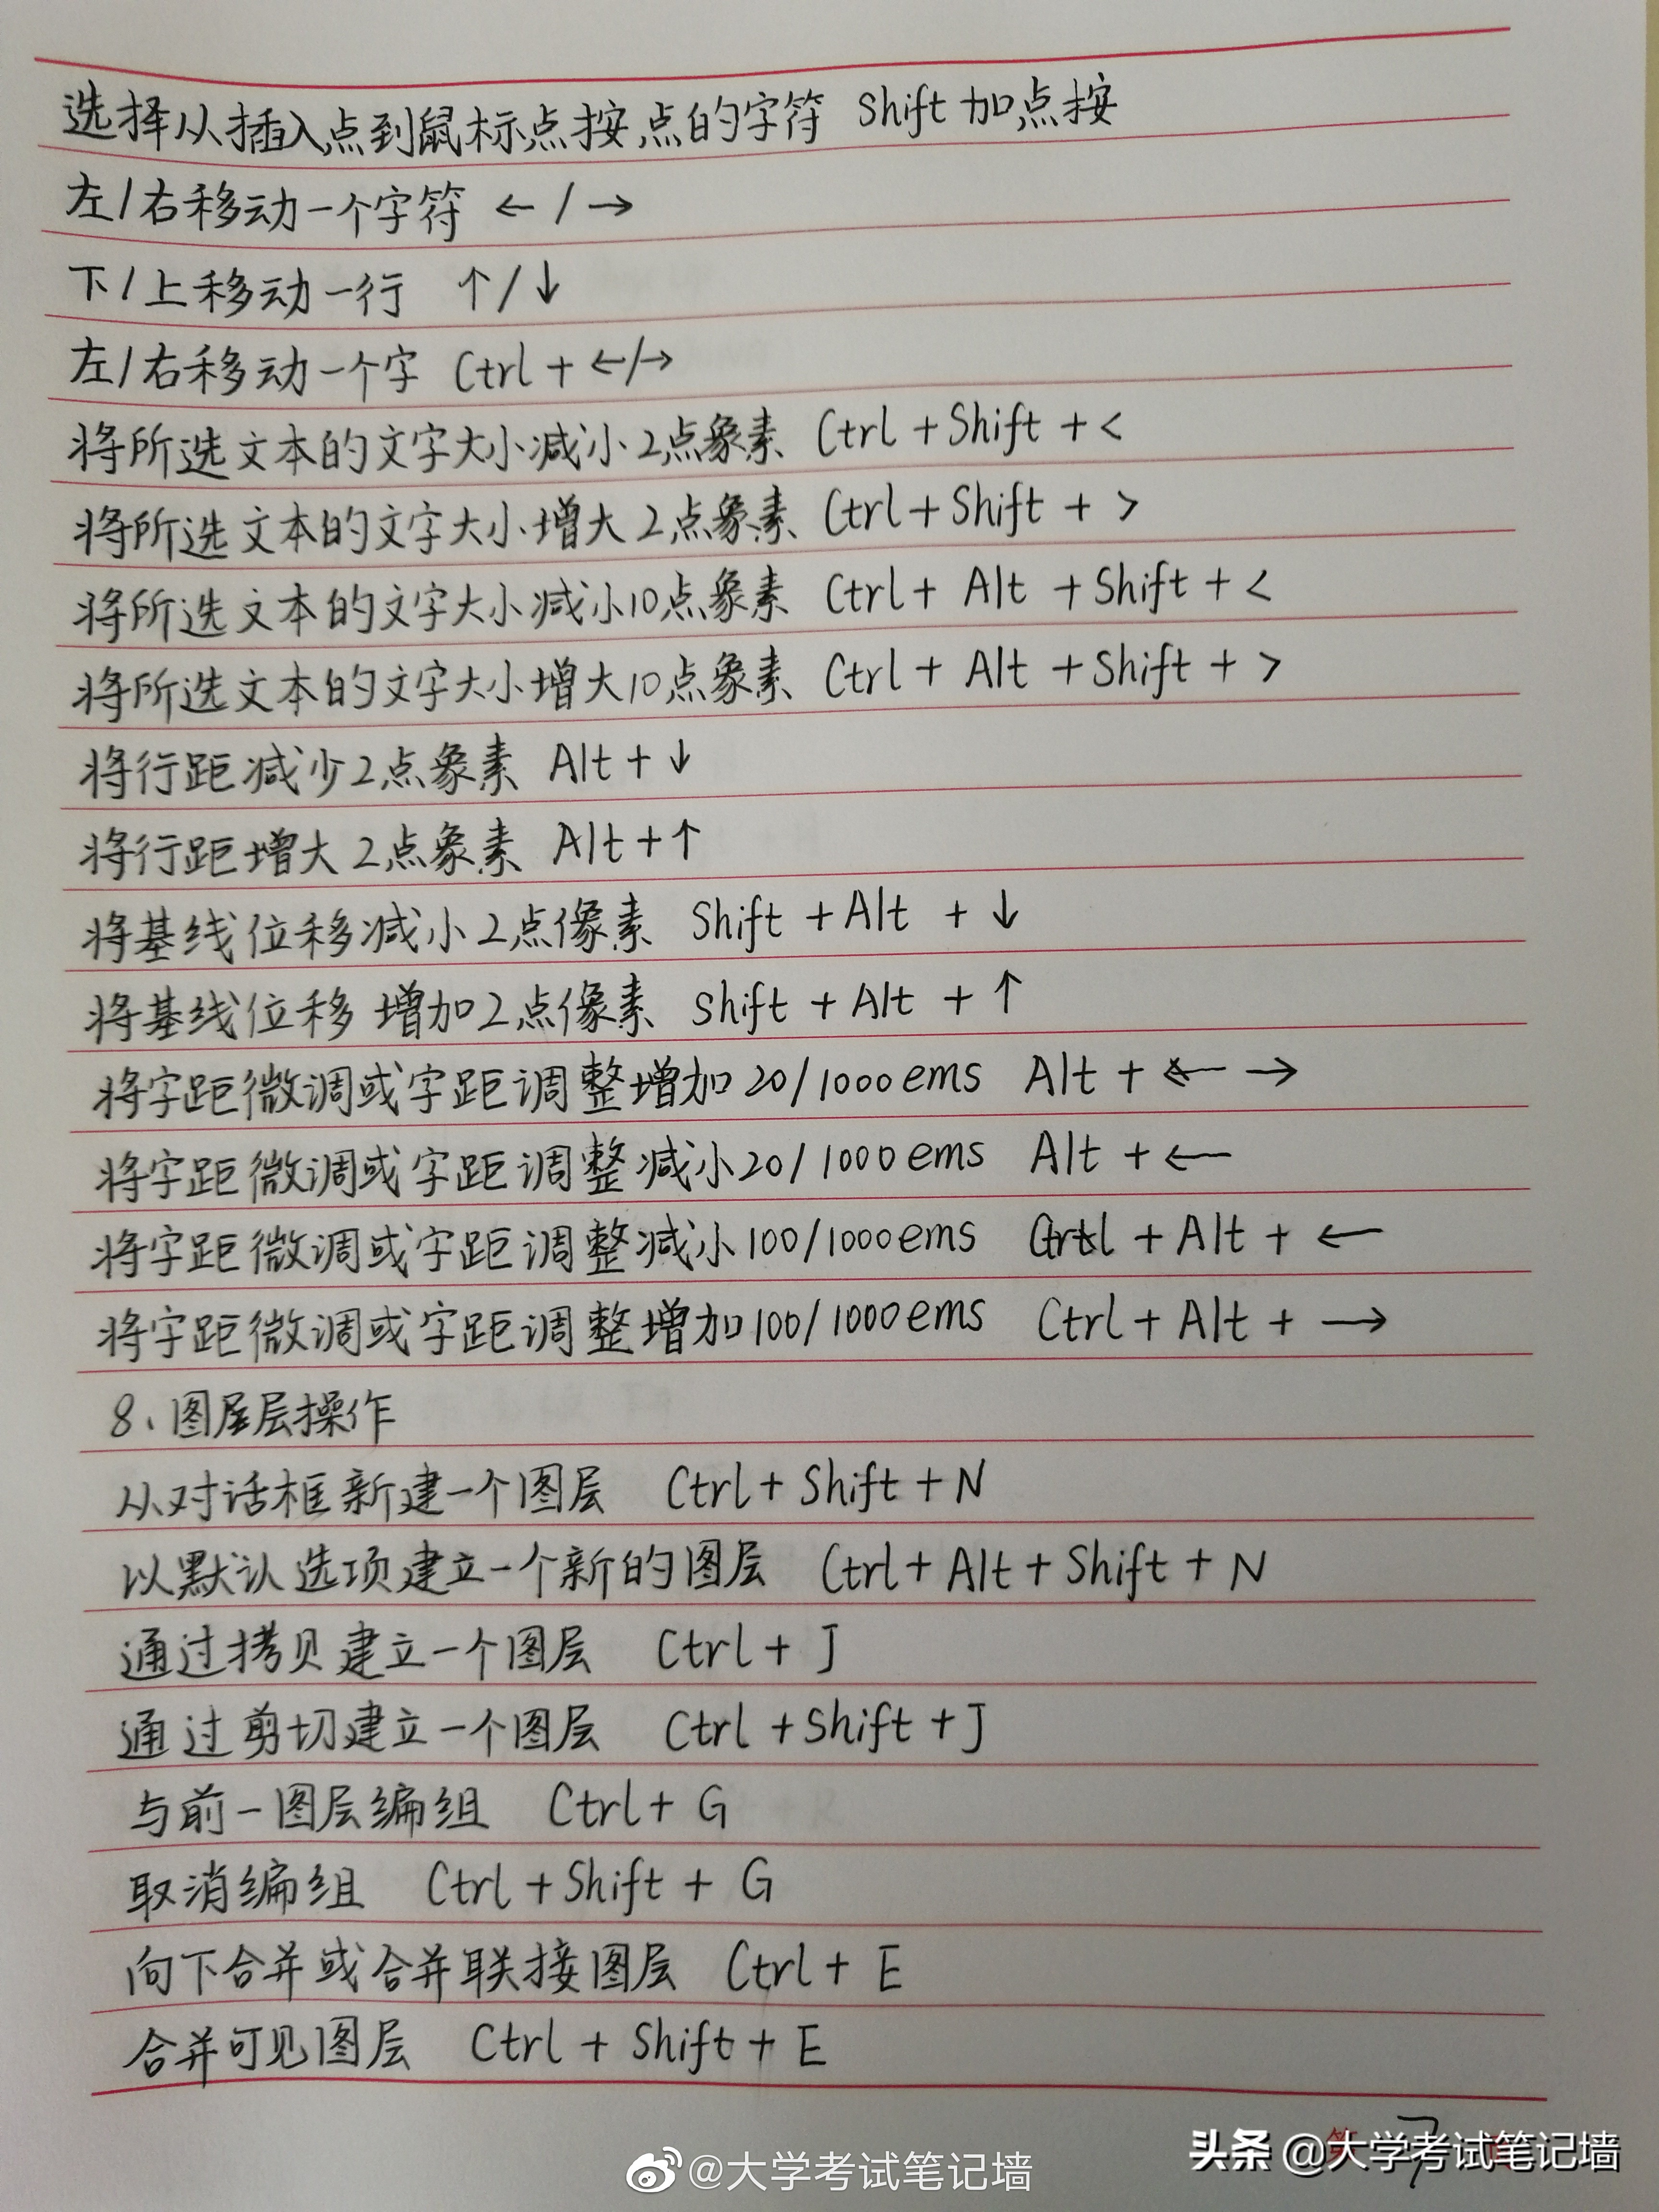 选择从插入点到鼠标点按点的字符 Shift加点按
左/右移动一个字符 ←/→
下/上移动一行 ↑/↓
左/右移动一个字 Ctrl+←/→
将所选文本的文字大小减小2点象素 Ctrl+Shift+<
将所选文本的文字大小增大2点象素 Ctrl+Shift+>
将所选文本的文字大小减小10点象素 Ctrl+Alt+Shift+<
将所选文本的文字大小增大10点象素 Ctrl+Alt+Shift+>
将行距减少2点象素 Alt+↓
将行距增大2点象素 Alt+↑
将基线位移减小2点像素 Shift+Alt+↓
将基线位移增加2点像素 Shift+Alt+↑
将字距微调或字距调整增加20/1000ems Alt+←→
将字距微调或字距调整减小20/1000ems Alt+←
将字距微调或字距调整减小100/1000ems Ctrl+Alt+←
将字距微调或字距调整增加100/1000ems Ctrl+Alt+→
8、图层层操作
从对话框新建一个图层 Ctrl+Shift+N
以默认选项建立一个新的图层 Ctrl+Alt+Shift+N
通过拷贝建立一个图层 Ctrl+J
通过剪切建立一个图层 Ctrl+Shift+J
与前一图层编组 Ctrl+G
取消编组 Ctrl+Shift+G
向下合并或合并联接图层 Ctrl+E
合并可见图层 Ctrl+Shift+E
第 7
头条 @大学考试笔记墙
@大学考试笔记墙